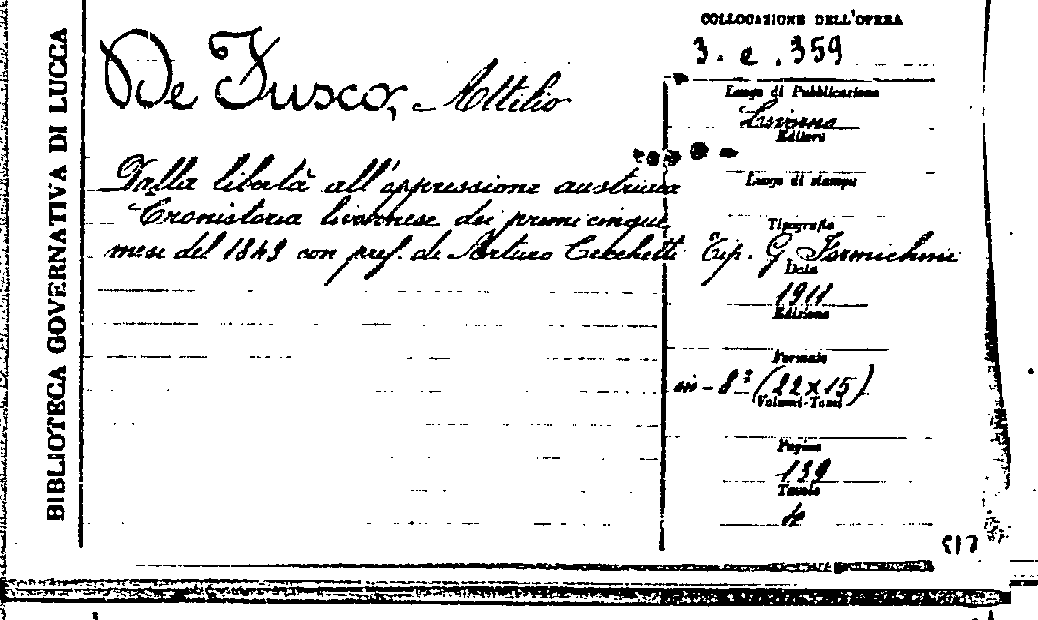 BIBLIOTECA GOVERNATIVA DI LUCCA
De Fusco, Attilio
Dalla libertà all'oppressione austriaca
Cronistoria livornese dei primi cinque
mesi del 1849 con pref. di Arturo Cecchetti
COLLOCAZIONE DELL'OPERA
3. e. 359
Luogo di Pubblicazione
Livorno
Editore
Luogo di stampa
Tipografia
Tip. G. Formichini
Data
1911
Edizione
Formato
in-8° (22x15)
Volumi-Tomi
Pagine
139
Tavole
4